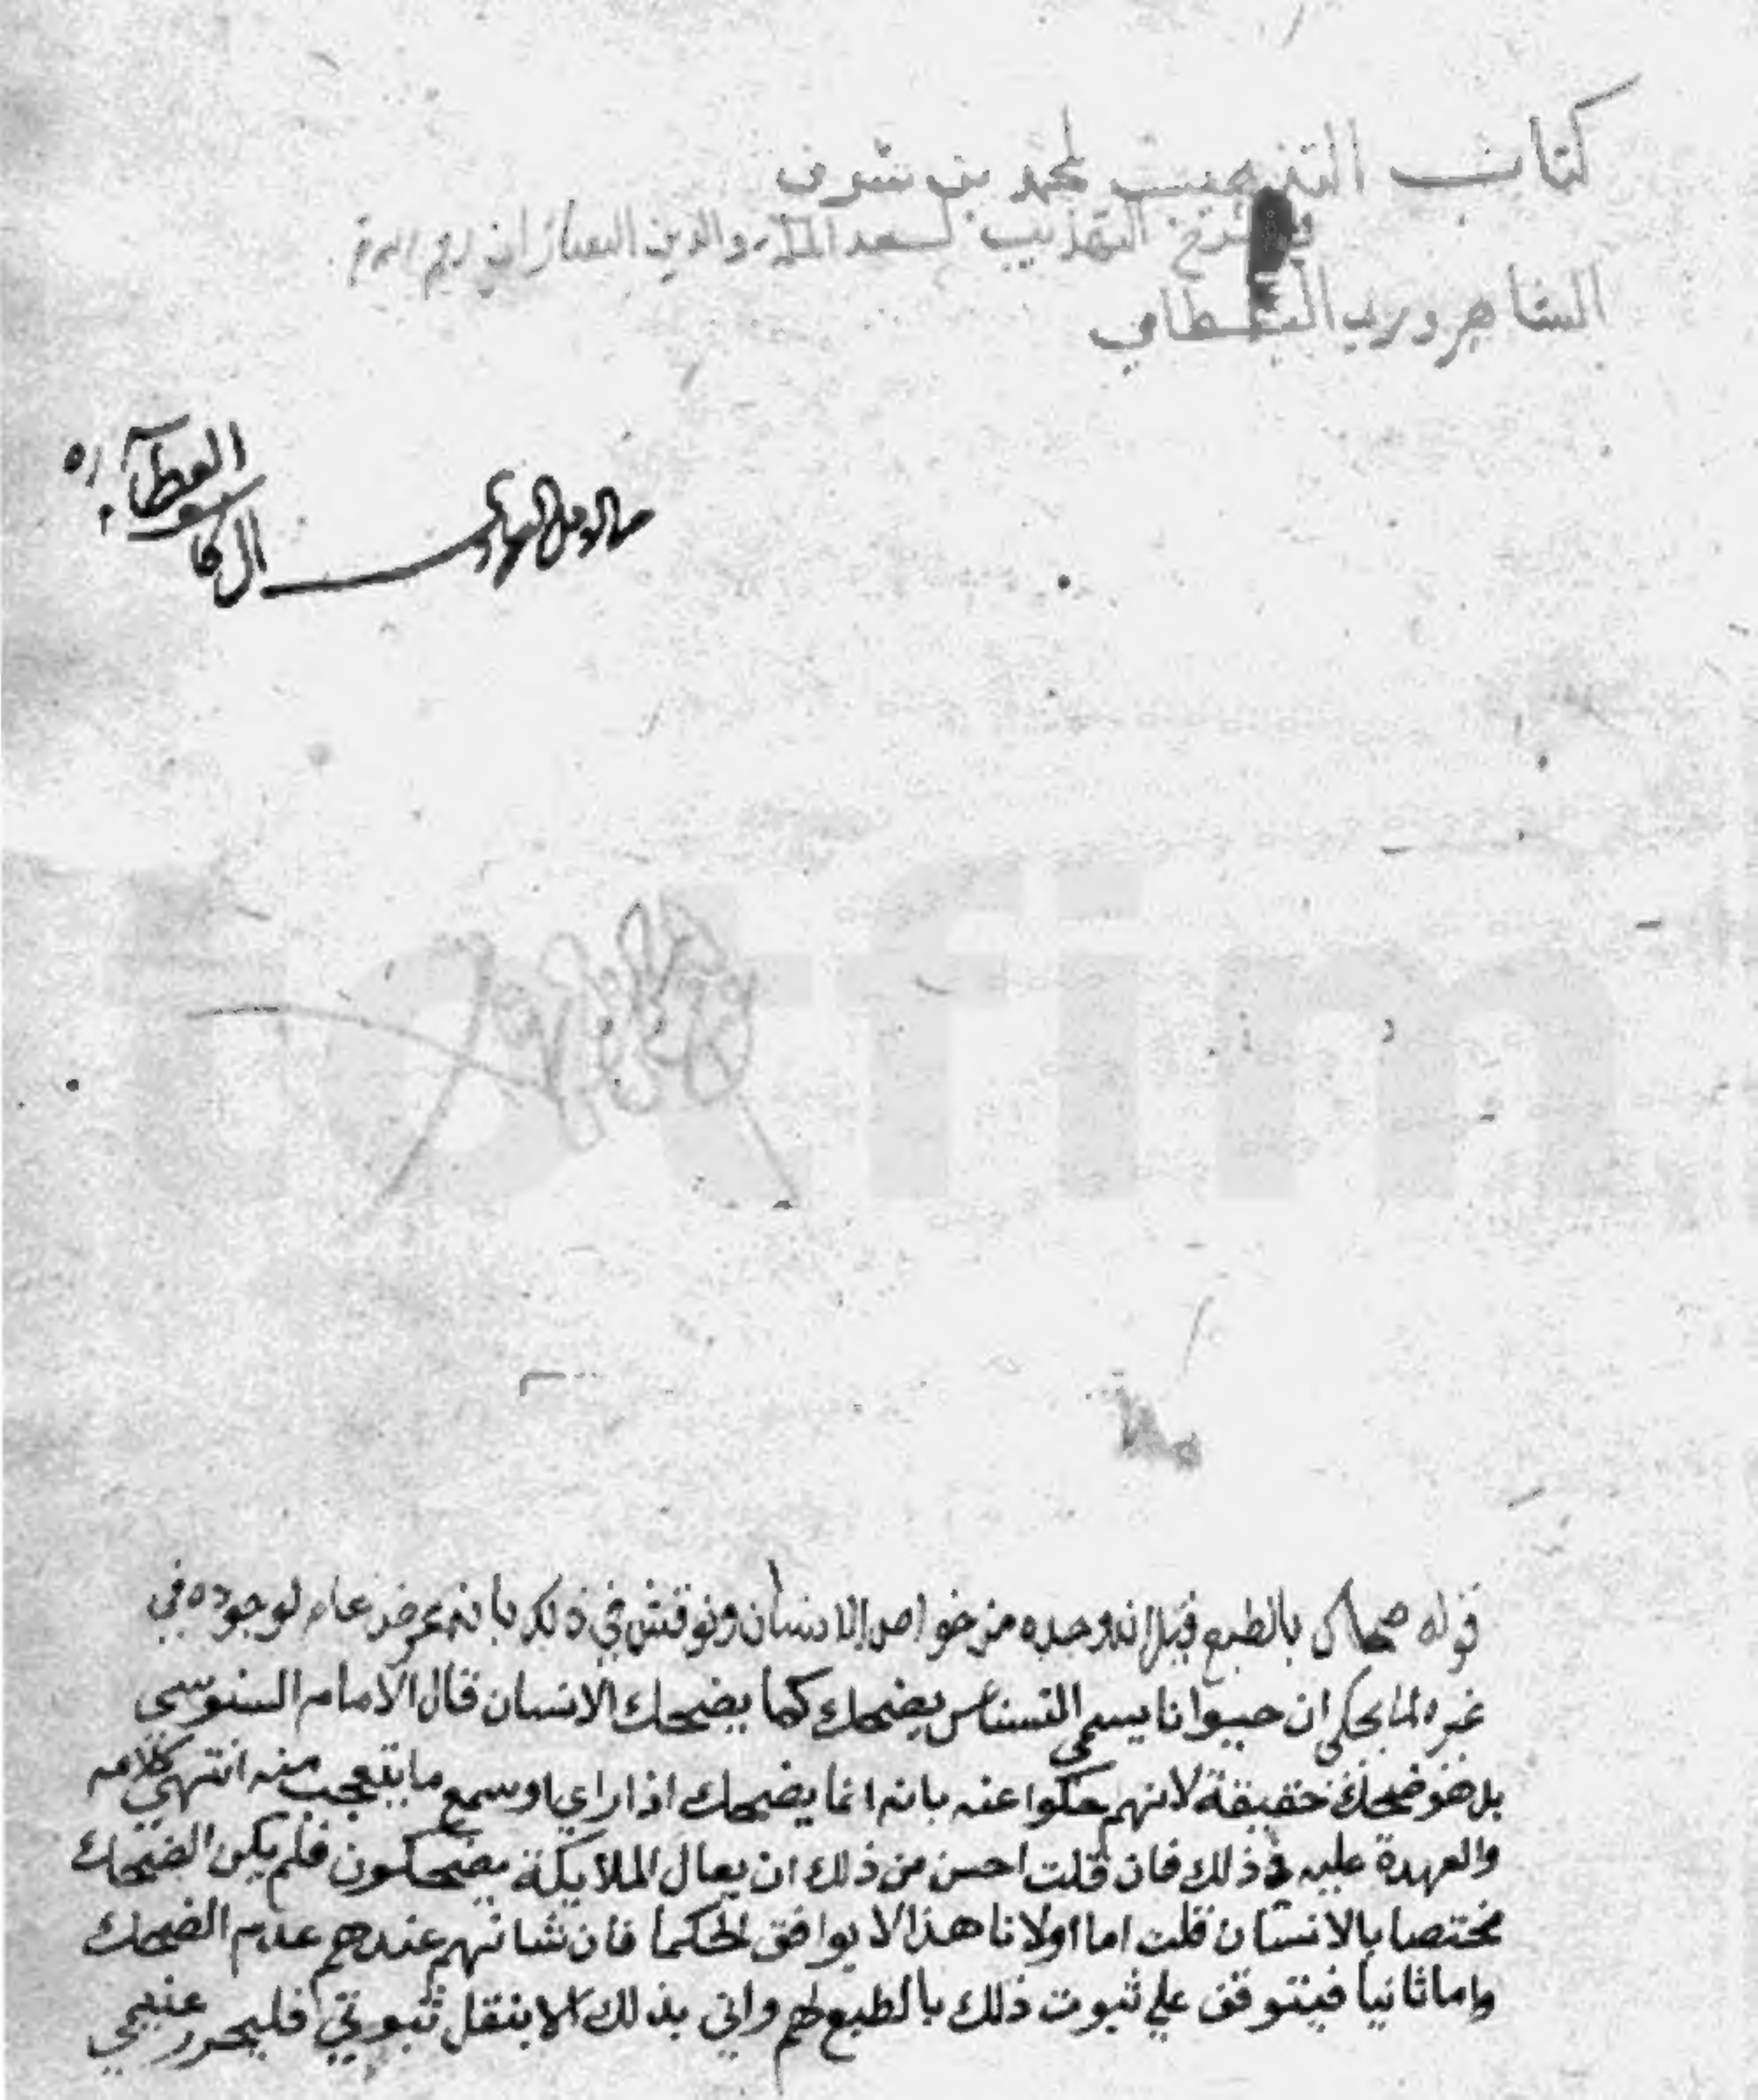 كتاب التذهيب لمحمد بن شرف
في شرح التهذيب لسعد الملة والدين التفتازاني رحم الله
الشاهرودي البسطامي
الغطاء
ال كاشف
قوله ضحاك بالطبع قيل انه وحده من خواص الانسان ونوقش في ذلك بانه عرض عام لوجوده في
غيره لما يحكى ان حيوانا يسمى النسناس يضحك كما يضحك الانسان قال الامام السنوسي
بل هو ضحك حقيقة لانهم حكوا عنه بانه انما يضحك اذا راي او سمع ما يتعجب منه انتهي كلامه
والعهدة عليه في ذلك فان قلت احسن من ذلك ان يقال الملايكة يضحكون فلم يكن الضحك
مختصا بالانسان قلت اما اولا فلان هذا لا يوافق الحكما فان شانهم عندهم عدم الضحك
واما ثانيا فيتوقف علي ثبوت ذلك بالطبع لهم واني بذلك الا بنقل ثبوتي فليحرر عنيمي